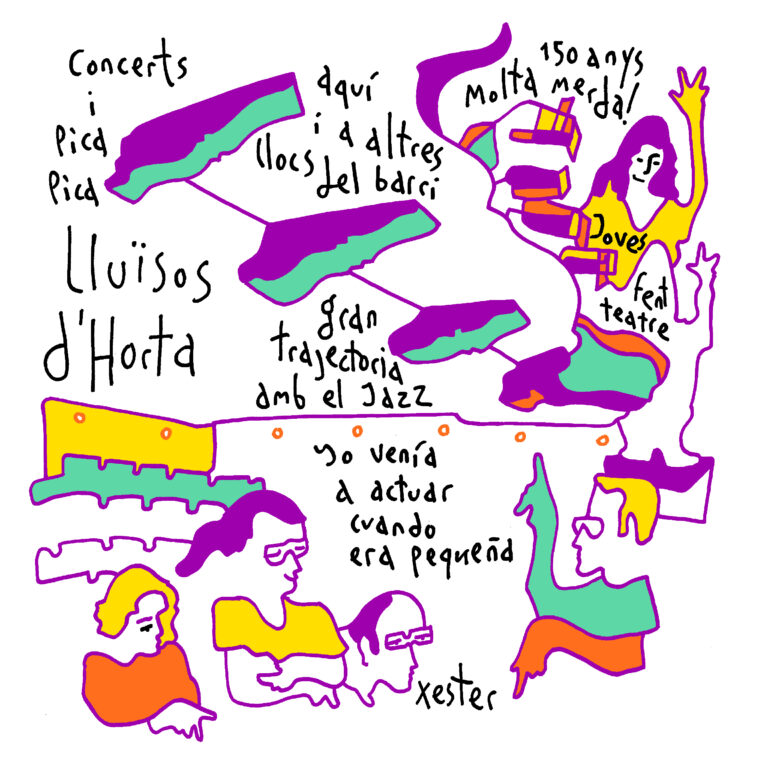 Concerts
i
Pica
Pica
aquí
i a altres
llocs
del barri
150 anys
Molta merda!
Joves
fent
teatre
Lluïsos
d'Horta
gran
trajectoria
amb el Jazz
yo venía
a actuar
cuando
era pequeña
xester